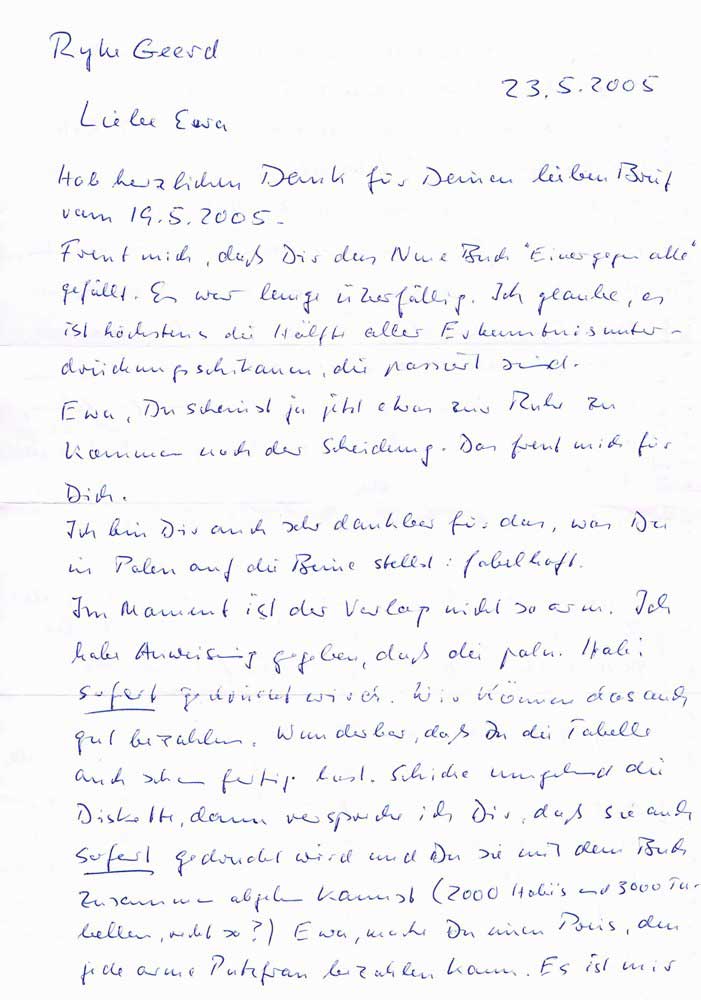 Ryke Geerd
23.5.2005
Liebe Ewa
Hab herzlichen Dank für Deinen lieben Brief
vom 19.5.2005.
Freut mich, daß Dir das Neue Buch "Einer gegen alle"
gefällt. Es war lange überfällig. Ich glaube, es
ist höchstens die Hälfte aller Erkenntnisunter-
drückungsschikanen, die passiert sind.
Ewa, Du scheinst ja jetzt etwas zur Ruhe zu
kommen nach der Scheidung. Das freut mich für
Dich.
Ich bin Dir auch sehr dankbar für das, was Du
in Polen auf die Beine stellst: fabelhaft.
Im Moment ist der Verlag nicht so arm. Ich
habe Anweisung gegeben, daß die poln. Habi
sofort gedruckt wird. Wir können das auch
gut bezahlen. Wunderbar, daß Du die Tabelle
auch schon fertig hast. Schicke umgehend die
Diskette, dann verspreche ich Dir, daß sie auch
sofort gedruckt wird und Du sie mit dem Buch
zusammen abgeben kannst (2000 Habi's und 3000 Ta-
bellen, nicht so?) Ewa, mache Du einen Preis, den
jede arme Putzfrau bezahlen kann. Es ist mir